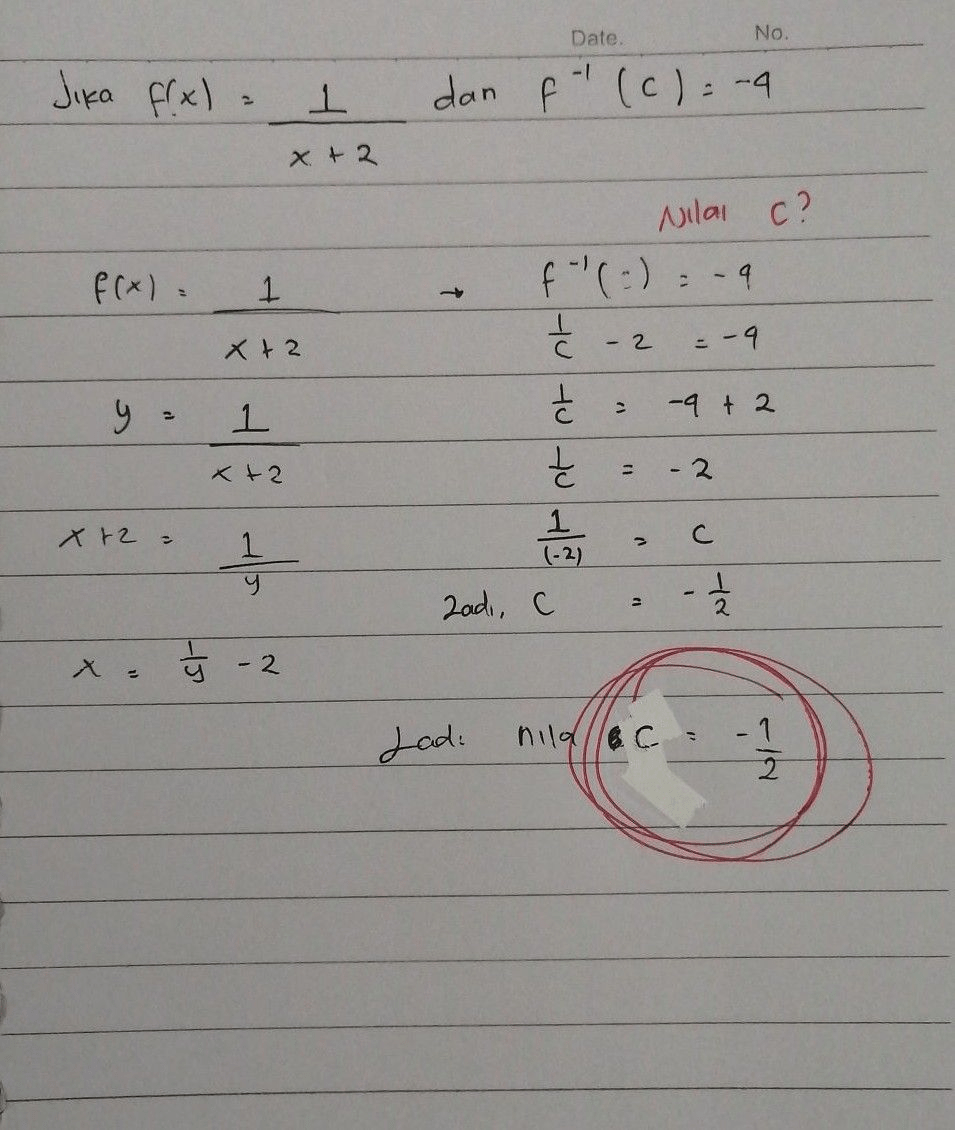 Date. No.
Jika f(x) = 1/(x + 2) dan f⁻¹ (c) = -4
Nilai C?
f(x) = 1/(x + 2)
y = 1/(x + 2)
x + 2 = 1/y
x = 1/y - 2
→ f⁻¹(c) = -4
1/c - 2 = -4
1/c = -4 + 2
1/c = -2
1/(-2) = C
Jadi, C = -1/2
Jadi nilai C = -1/2